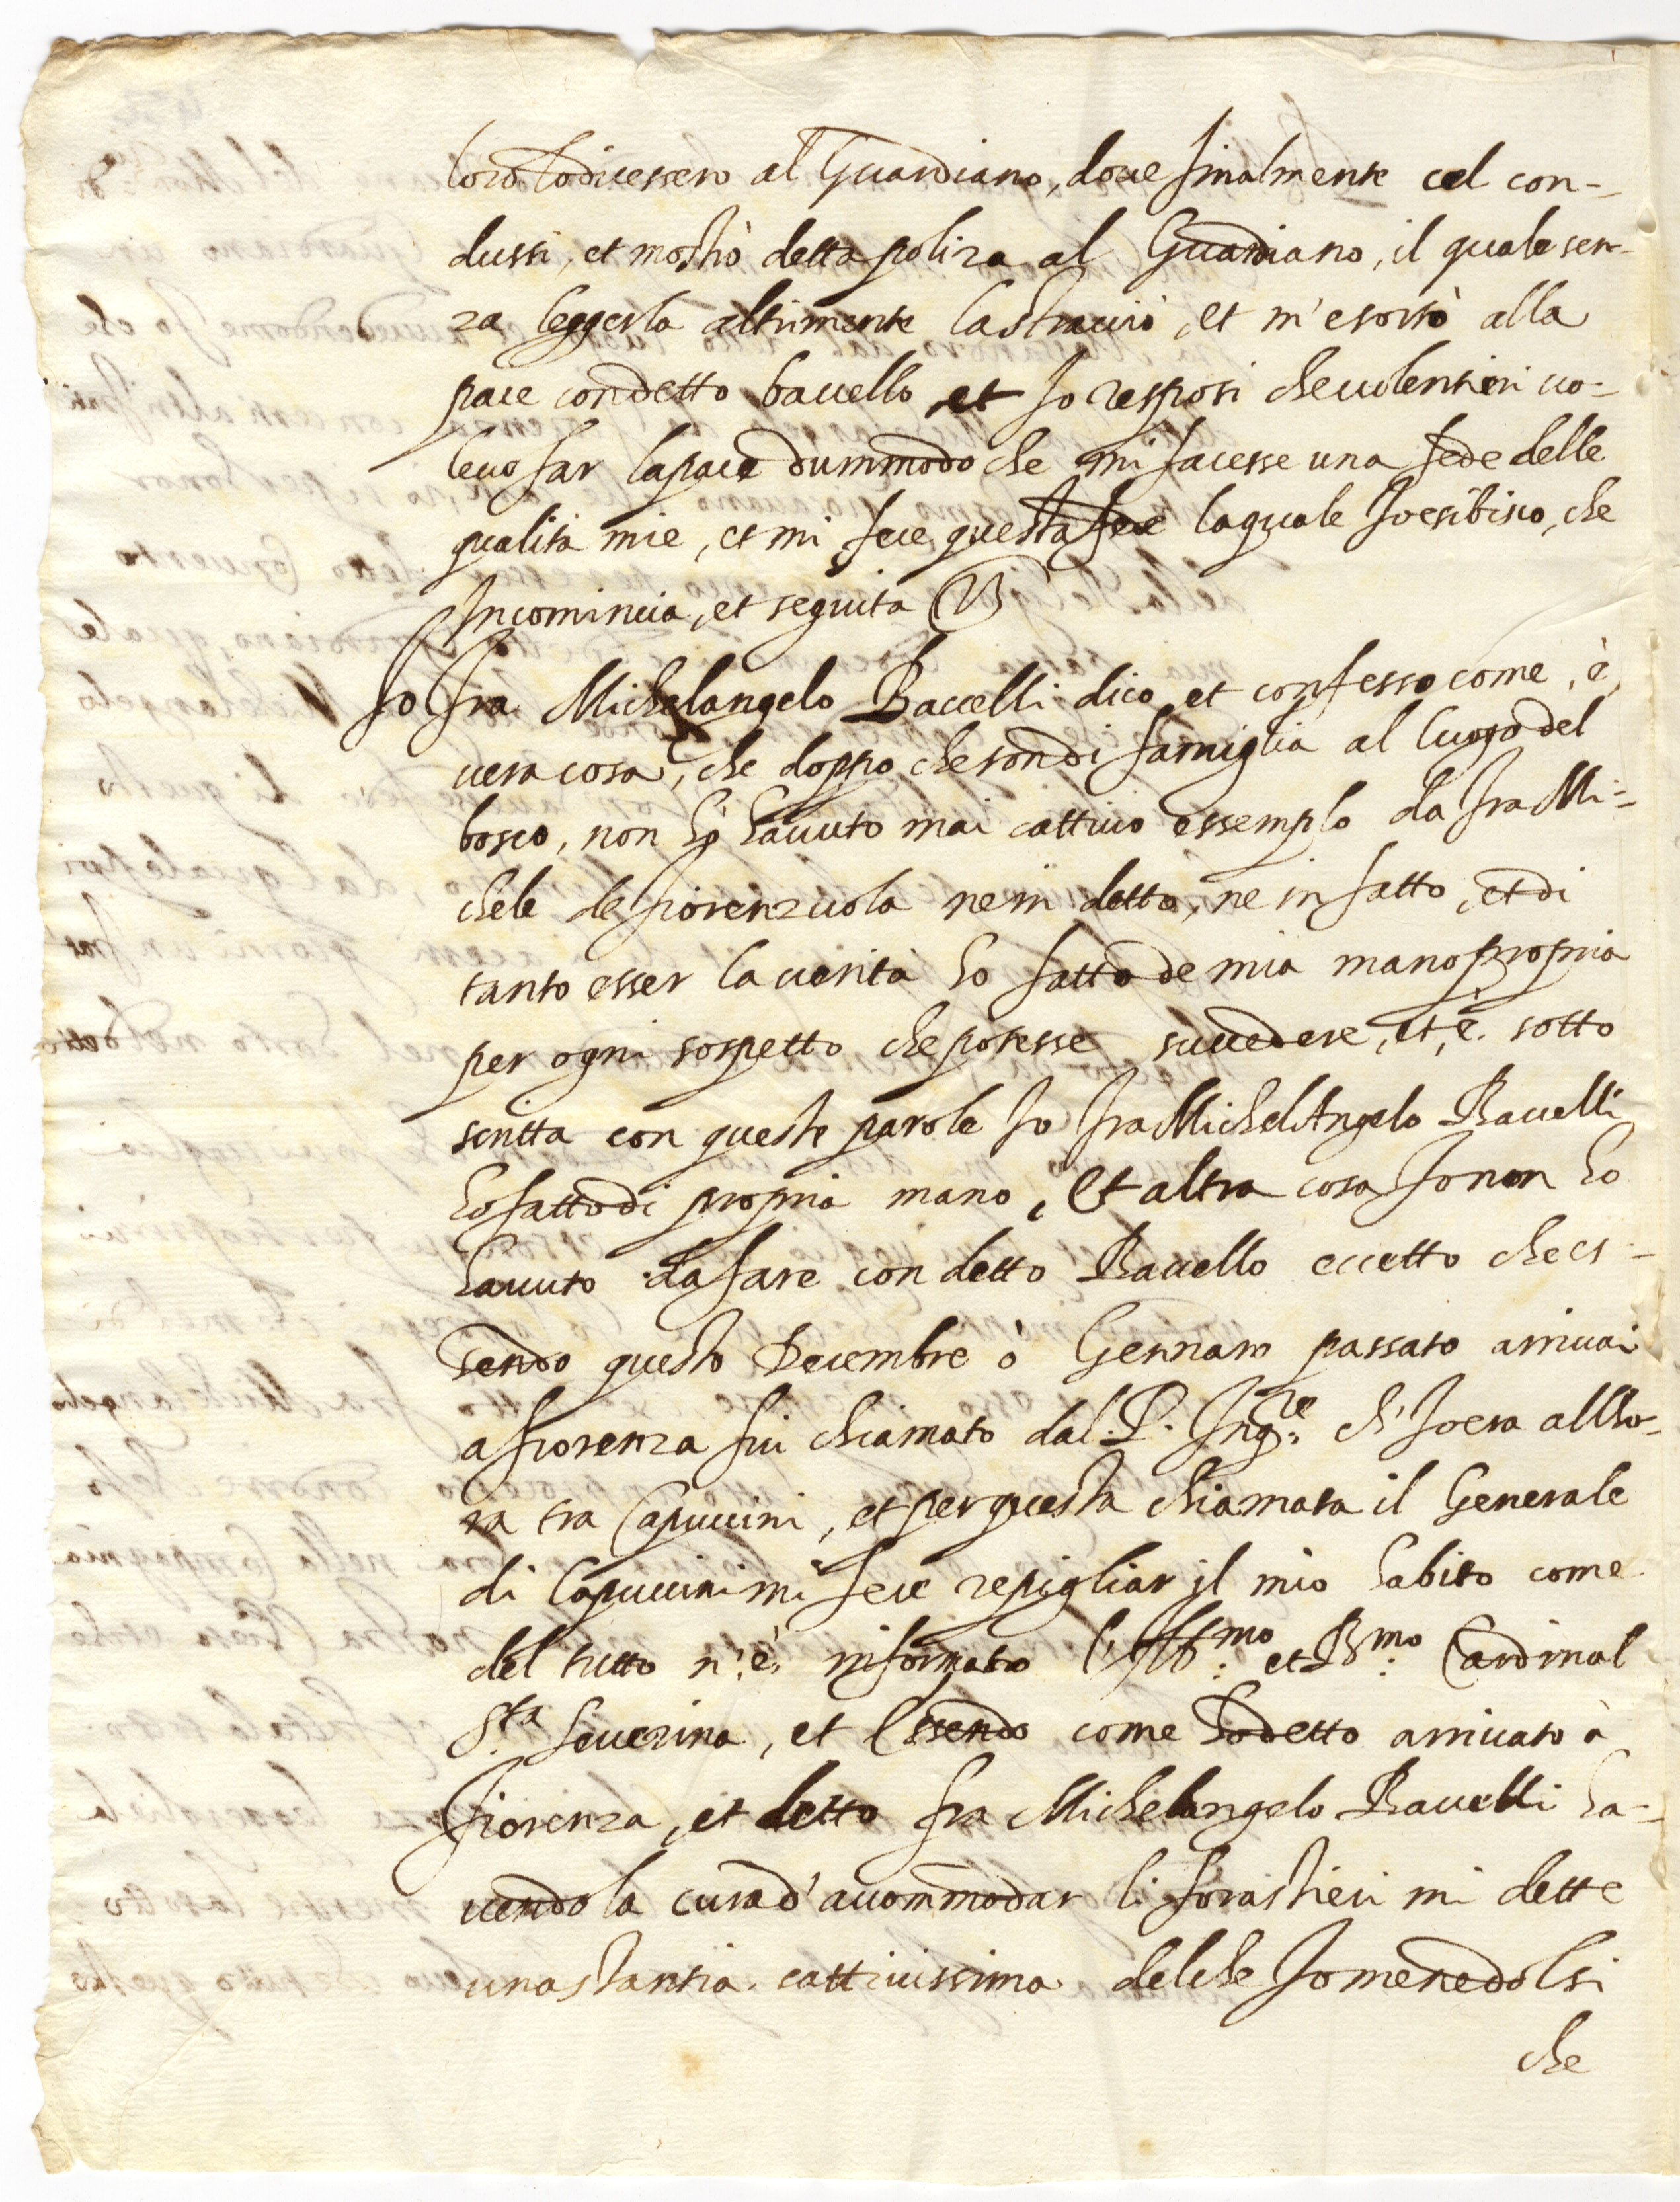 loro lo dicessero al Guardiano, doue finalmente cel con-
dussi, et mostrò detta poliza al Guardiano, il quale sen-
za leggerla altrimente la stracciò, et m'esortò alla
pace con detto baccello et Io resposi che uolentieri uo-
leuo far la pace dummodo che mi facesse una fede delle
qualità mie, et mi fece questa fede la quale Io esibisco, che
Incomincia, et seguita
Io fra Michelangelo Baccelli dico et confesso come, è,
uera cosa, che doppo che son di famiglia al luogo del
bosco, non hò hauuto mai cattiuo essemplo da fra Mi-
chele de fiorenzuola ne in detto, ne in fatto, et di
tanto esser la uerità ho fatto de mia mano propria
per ogni sospetto che potesse succedere, et, è, sotto
scritta con queste parole Io fra MichelAngelo Baccelli
ho fatto di propria mano, Et altra cosa Io non ho
hauuto da fare con detto Baccello eccetto che es-
sendo questo Decembre ò Gennaro passato arriuai
a fiorenza fui chiamato dal P. Inq.re ch'Io era allho-
ra tra Capuccini, et per questa chiamata il Generale
di Capuccini mi fece repigliar il mio habito come
del tutto n'è, informato l'Ill.mo et R.mo Cardinal
S.ta Seuerina, et Essendo come ho detto arriuato à
Fiorenza, et detto fra Michelangelo Baccelli ha-
uendo la cura d'accommodar li forastieri mi dette
una stantia cattiuissima delche Io me ne dolsi
che